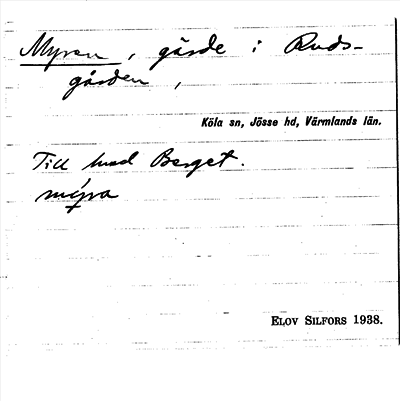 Myren, gärde i Ruds-
gården,
Köla sn, Jösse hd, Värmlands län.
Till hmd Berget.
Elov Silfors 1938.